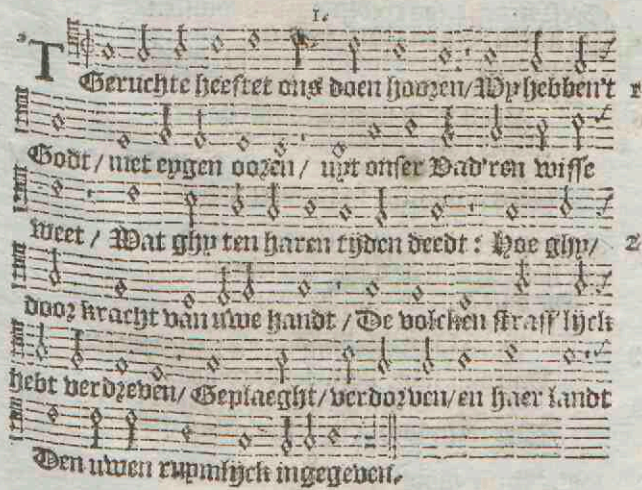 1.
T Geruchte heeftet ons doen hooren/Wy hebben't 1
Godt/met eygen ooren/ uyt onser Vad'ren wisse
weet/ Wat ghy ten haren tijden deedt: Hoe ghy/ 2
door kracht van uwe handt/De volcken straff'lijck
hebt verdreven/Geplaeght/verdorven/en haer landt
Den uwen ruymlijck ingegeven.